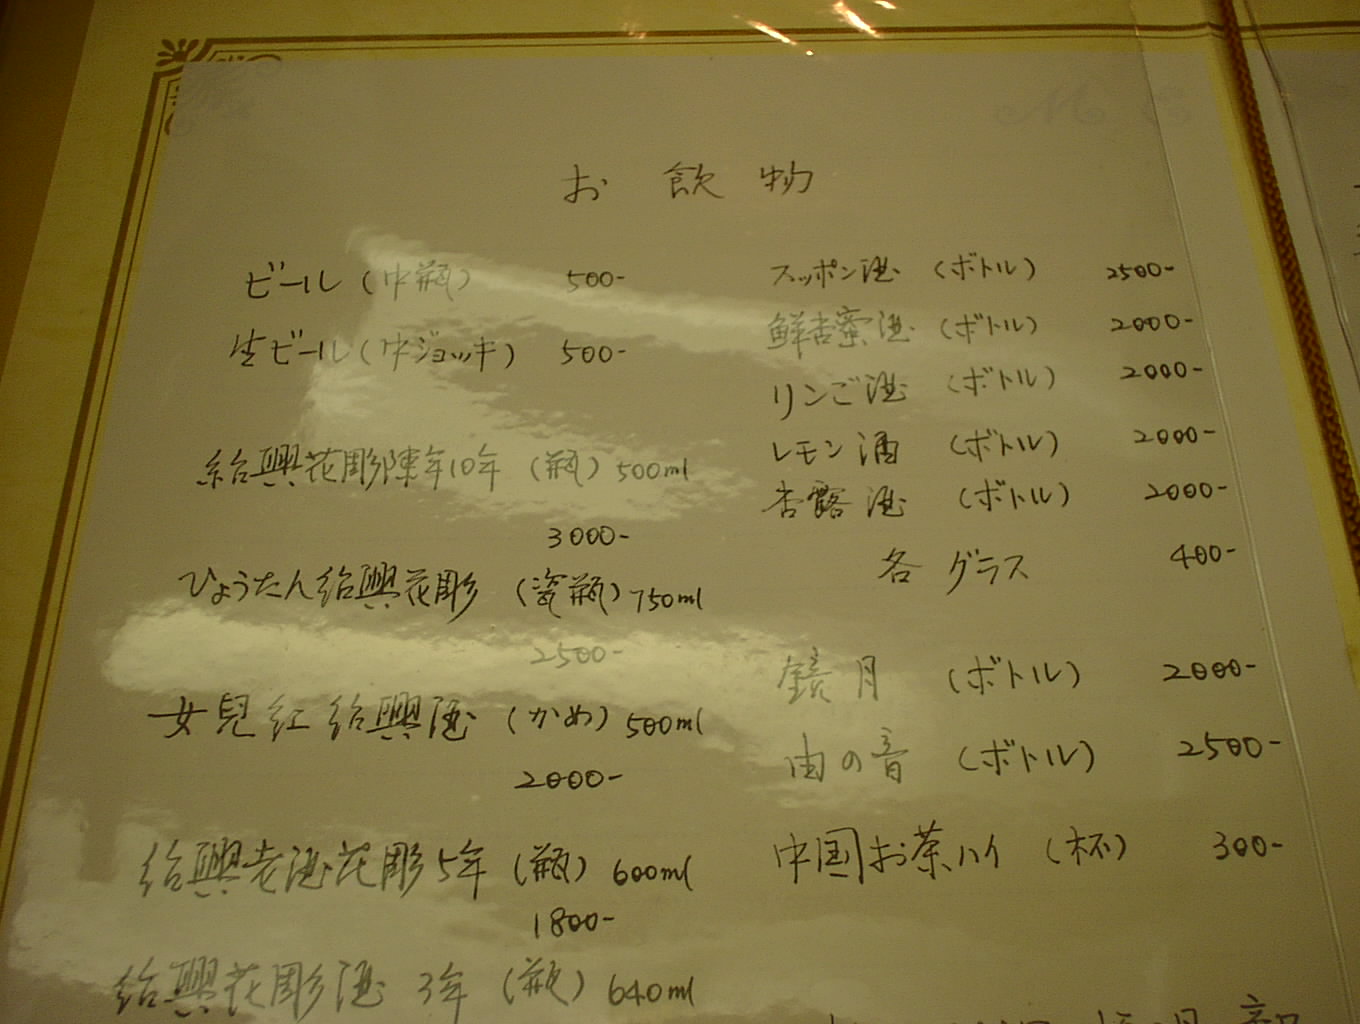 お飲物
ビール（中瓶） 500-
生ビール（中ジョッキ） 500-
紹興花彫陳年10年（瓶）500ml
3000-
ひょうたん紹興花彫（瓷瓶）750ml
2500-
女兒紅紹興酒（かめ）500ml
2000-
紹興老酒花彫5年（瓶）600ml
1800-
紹興花彫酒 3年（瓶）640ml
スッポン酒（ボトル） 2500-
鮮杏蜜酒（ボトル） 2000-
リンご酒（ボトル） 2000-
レモン酒（ボトル） 2000-
杏露酒（ボトル） 2000-
各グラス 400-
鏡月（ボトル） 2000-
雨の音（ボトル） 2500-
中国お茶ハイ（杯） 300-